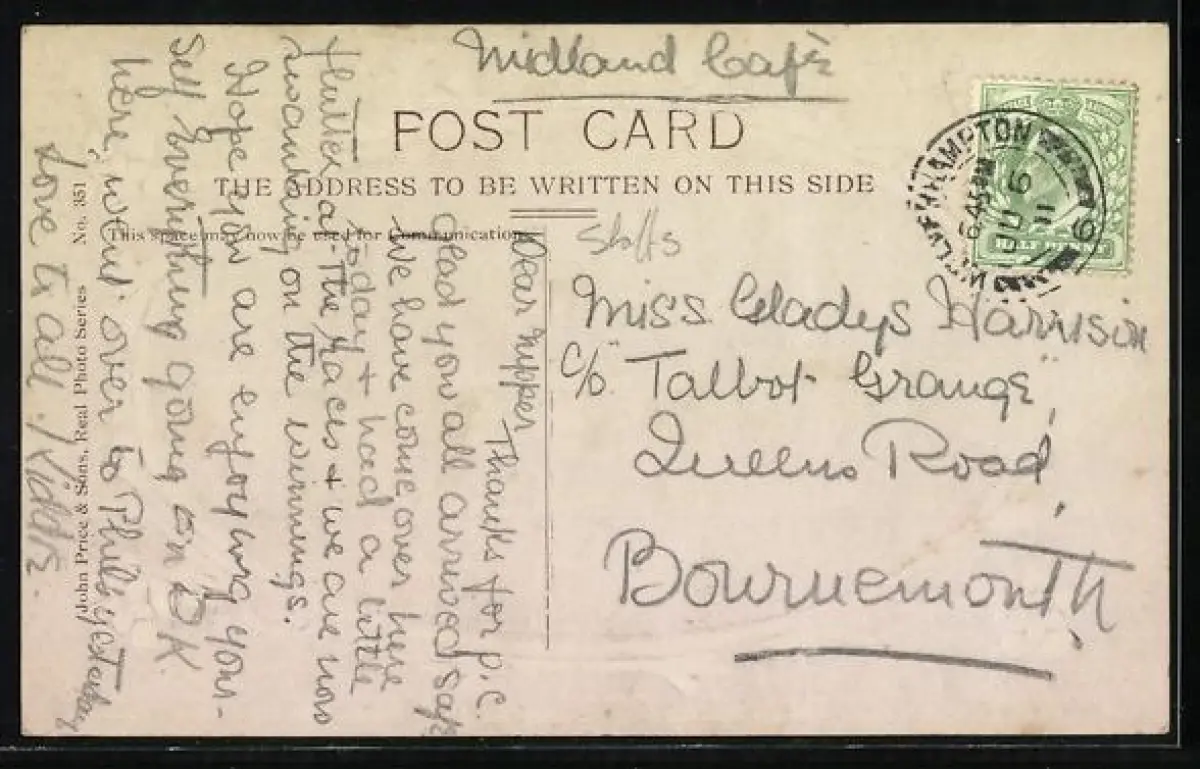 Midland Café
POST CARD
THE ADDRESS TO BE WRITTEN ON THIS SIDE
This space may now be used for Communications
Dear Nipper
Thanks for p.c.
Glad you all arrived safe
we have come over here
today & had a little
flutter at the Races & we are now
swanking on the winnings.
Hope you are enjoying your-
self Everything going on O.K.
here, went over to Phils yesterday
Love to all.
John Price & Sons, Real Photo Series No. 351
WOLVERHAMPTON
6 45 PM
JU 6
11
HALF PENNY
Staffs
Miss Gladys Harrison
c/o "Talbot Grange",
Queens Road,
Bournemouth.